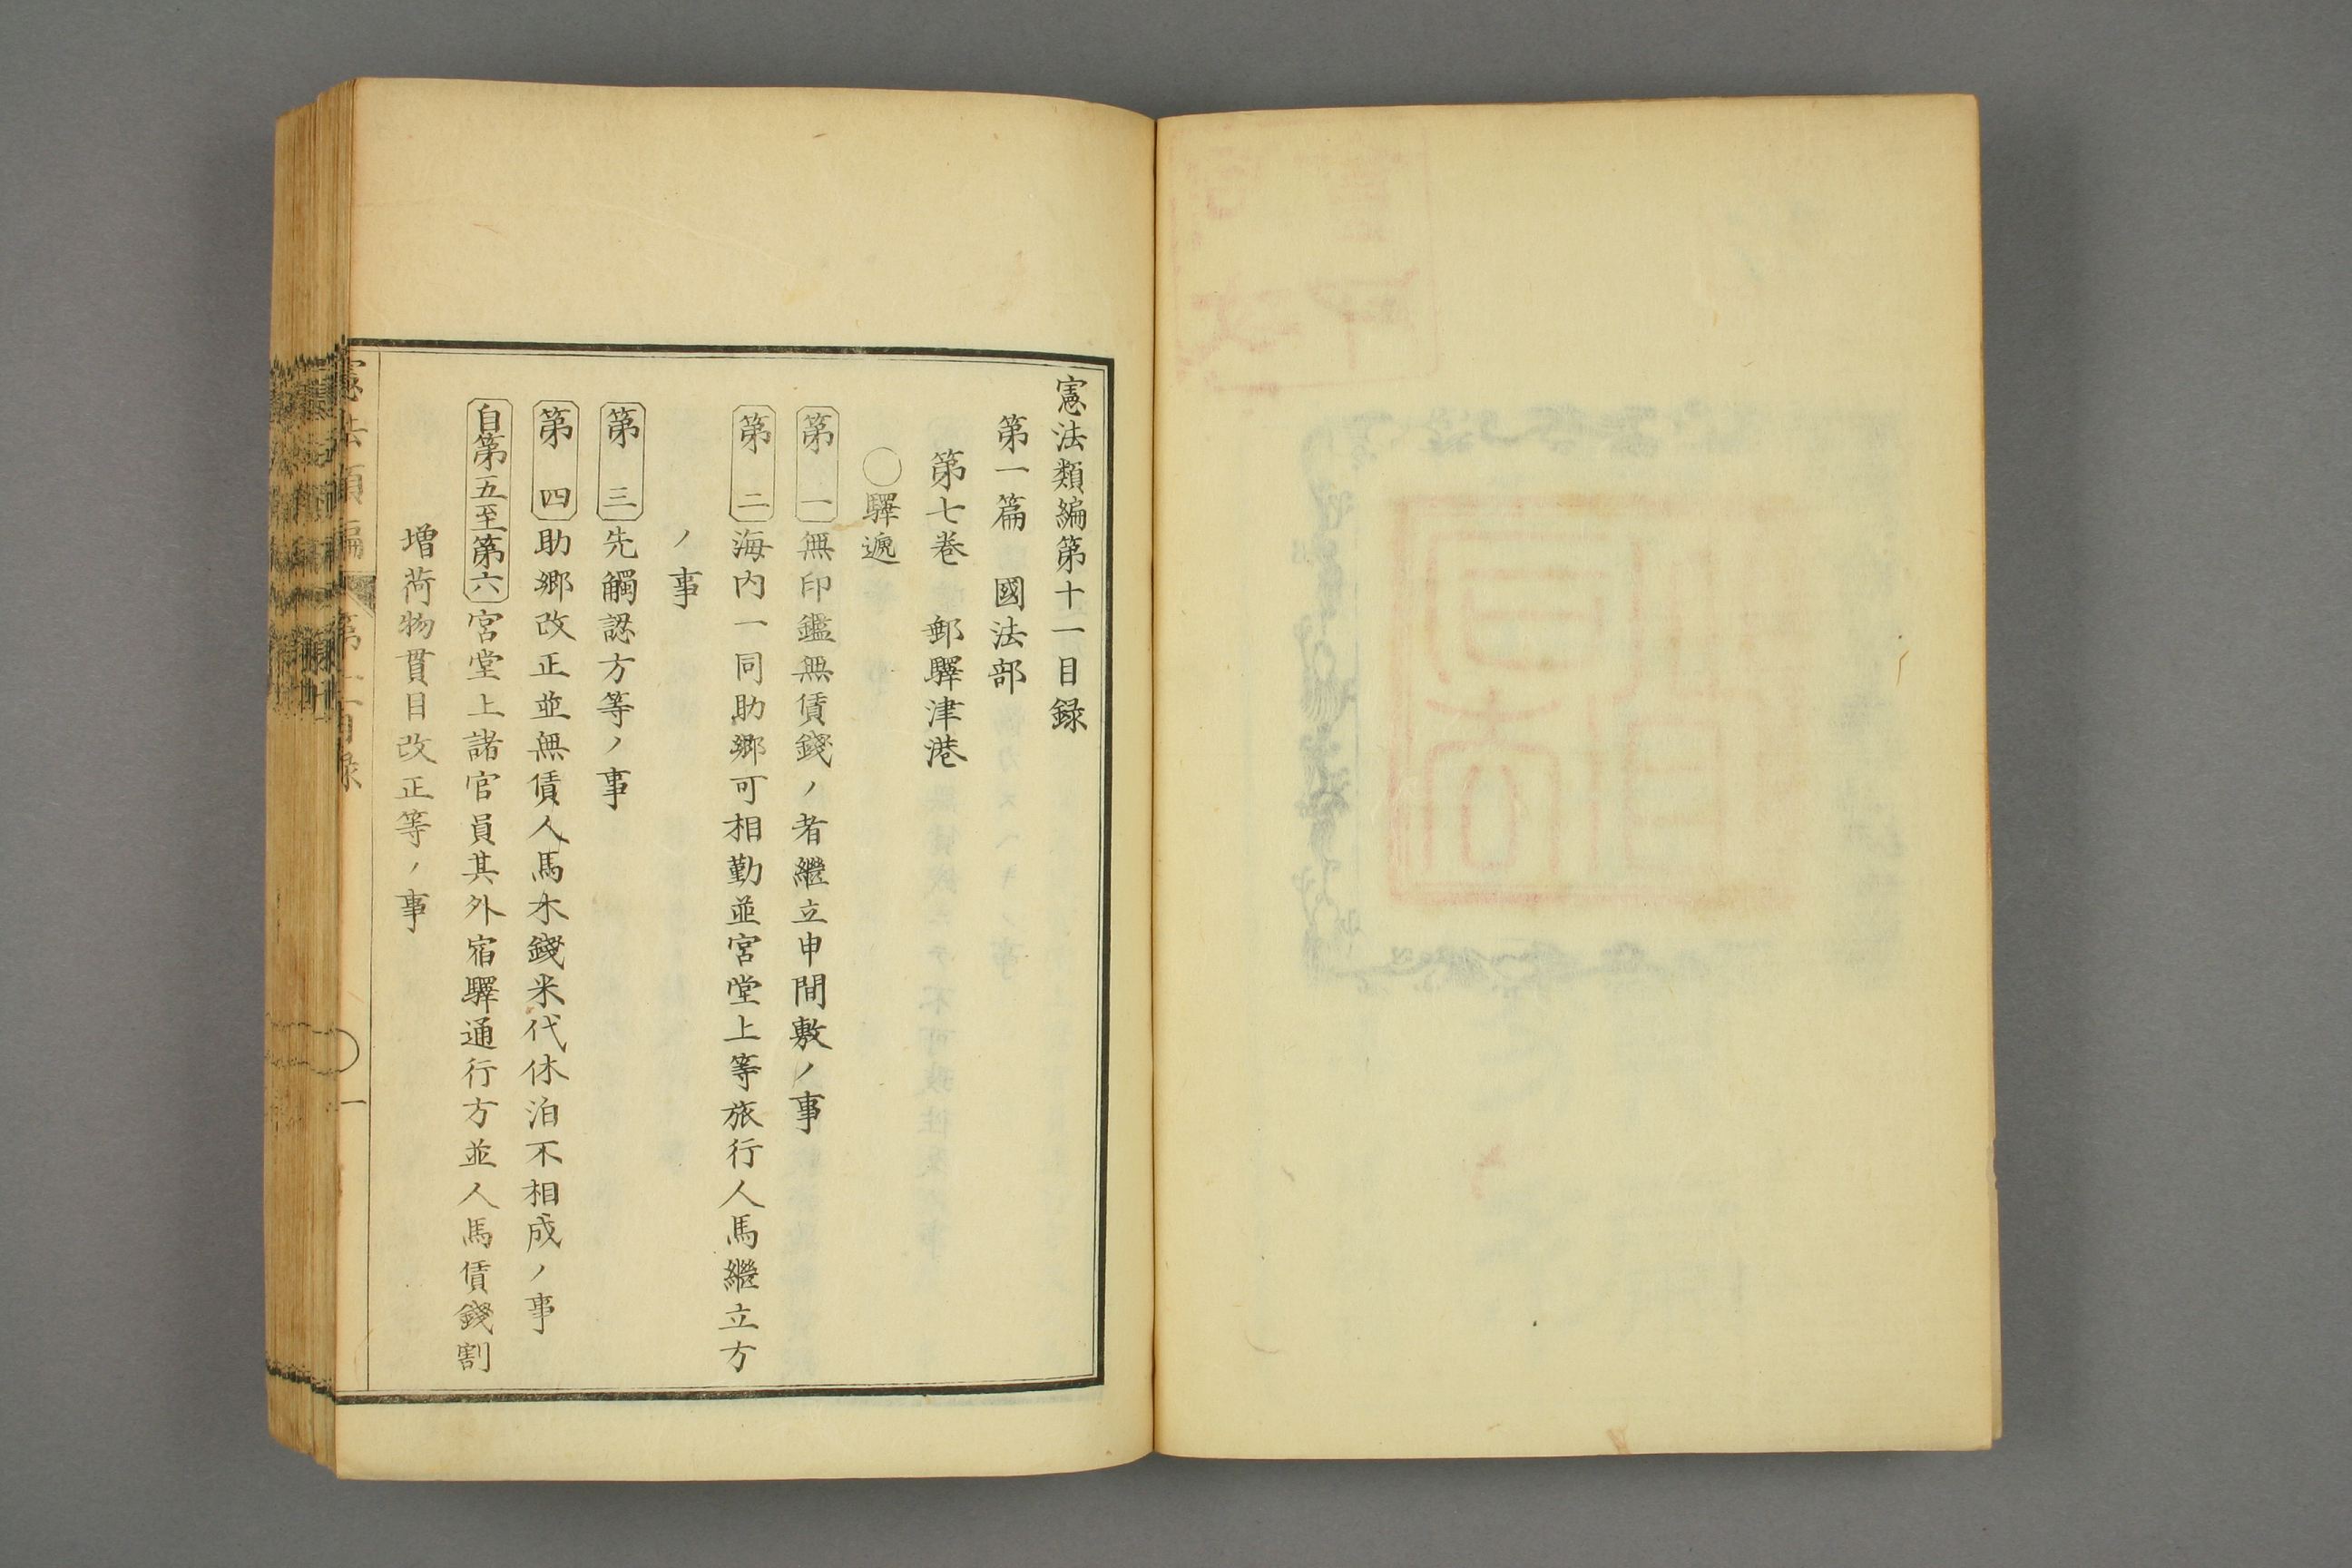 憲法類編第十一目録
第一篇　國法部
第七巻　郵驛津港
〇驛遞
第一　無印鑑無賃錢ノ者繼立申間敷ノ事
第二　海内一同助郷可相勤並宮堂上等旅行人馬繼立方
ノ事
第三　先觸認方等ノ事
第四　助郷改正並無賃人馬木錢米代休泊不相成ノ事
自第五至第六　宮堂上諸官員其外宿驛通行方並人馬賃錢割
増荷物貫目改正等ノ事
憲法類編　第十一目録　一